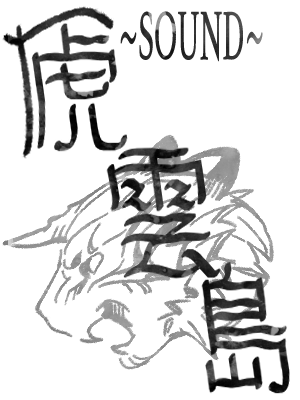 ~SOUND~
虎
雲